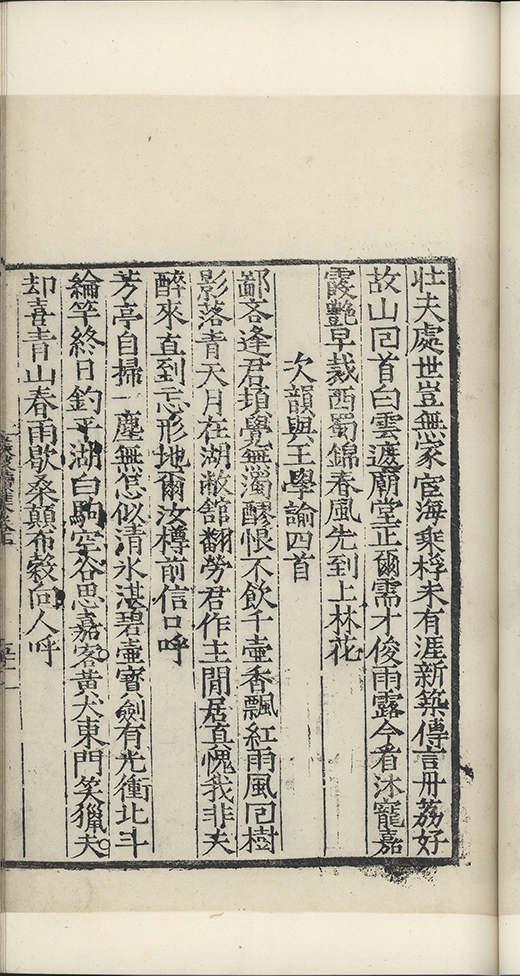 壯夫處世豈無家宦海乘桴未有涯新築傳言丹荔好
故山回首白雲遮廟堂正爾需才俊雨露今看沐寵嘉
霞艷早裁西蜀錦春風先到上林花
次韻與王學諭四首
鄙吝逢君頓覺無濁醪恨不飲千壺香飄紅雨風回樹
影落青天月在湖敝館翻勞君作主閒居直愧我非夫
醉來直到忘形地爾汝樽前信口呼
芳亭自掃一塵無怎似清氷湛碧壺寶劍有光衝北斗
綸竿終日釣平湖白駒空谷思嘉客黃犬東門笑獵夫
却喜青山春雨歇桑顛布穀向人呼